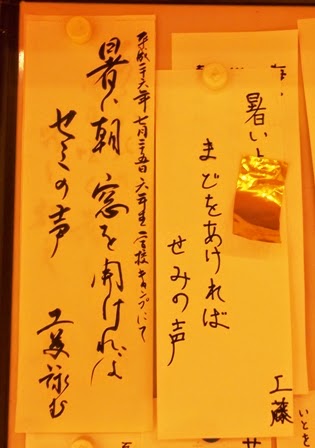 平成二六年七月二五日六年生学校キャンプにて
暑い朝窓を開ければ
セミの声
工藤詠む
暑い
まどをあければ
せみの声
工藤
いとを